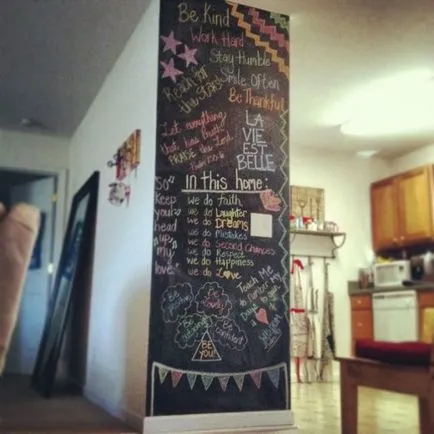 Be Kind
Work Hard
Stay Humble
Smile Often
Reach for
the Stars
Be Thankful
Let everything
that has breath
PRAISE the Lord
LA
VIE
EST
BELLE
So
Keep
your
head
up
my
love
in this home:
we do Faith
we do Laughter
we do Dreams
we do Mistakes
we do Second Chances
we do Respect
we do Happiness
we do Love
Teach Me
to number
my days
BE
YOU!